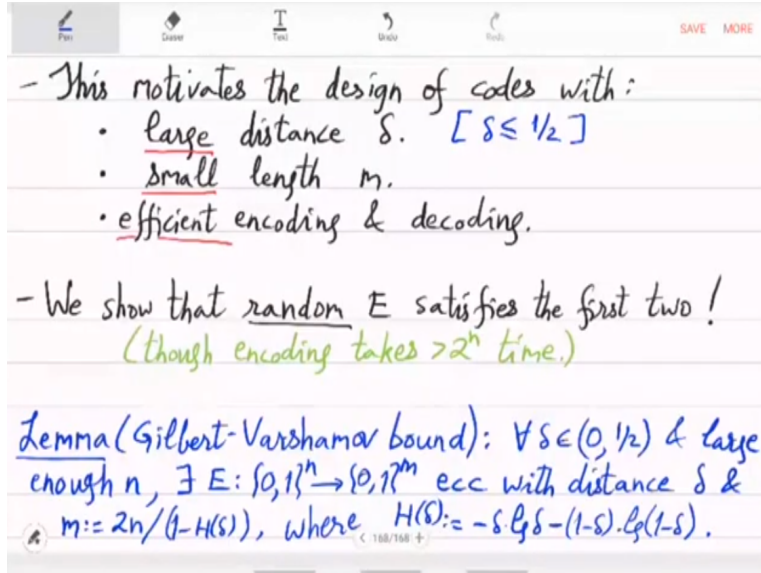 Pen Eraser Text Undo Redo SAVE MORE
- This motivates the design of codes with:
• large distance δ. [δ ≤ 1/2]
• small length m.
• efficient encoding & decoding.
- We show that random E satisfies the first two!
(though encoding takes >2ⁿ time.)
Lemma (Gilbert-Varshamov bound): ∀δ∈(0,1/2) & large
enough n, ∃ E: {0,1}ⁿ→{0,1}ᵐ ecc with distance δ &
m:= 2n/(1-H(δ)), where H(δ):= -δ.lgδ-(1-δ).lg(1-δ).
< 168/168 +